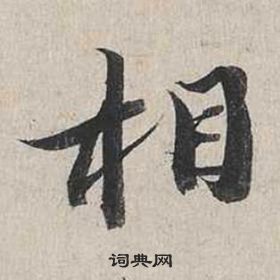 相
词典网